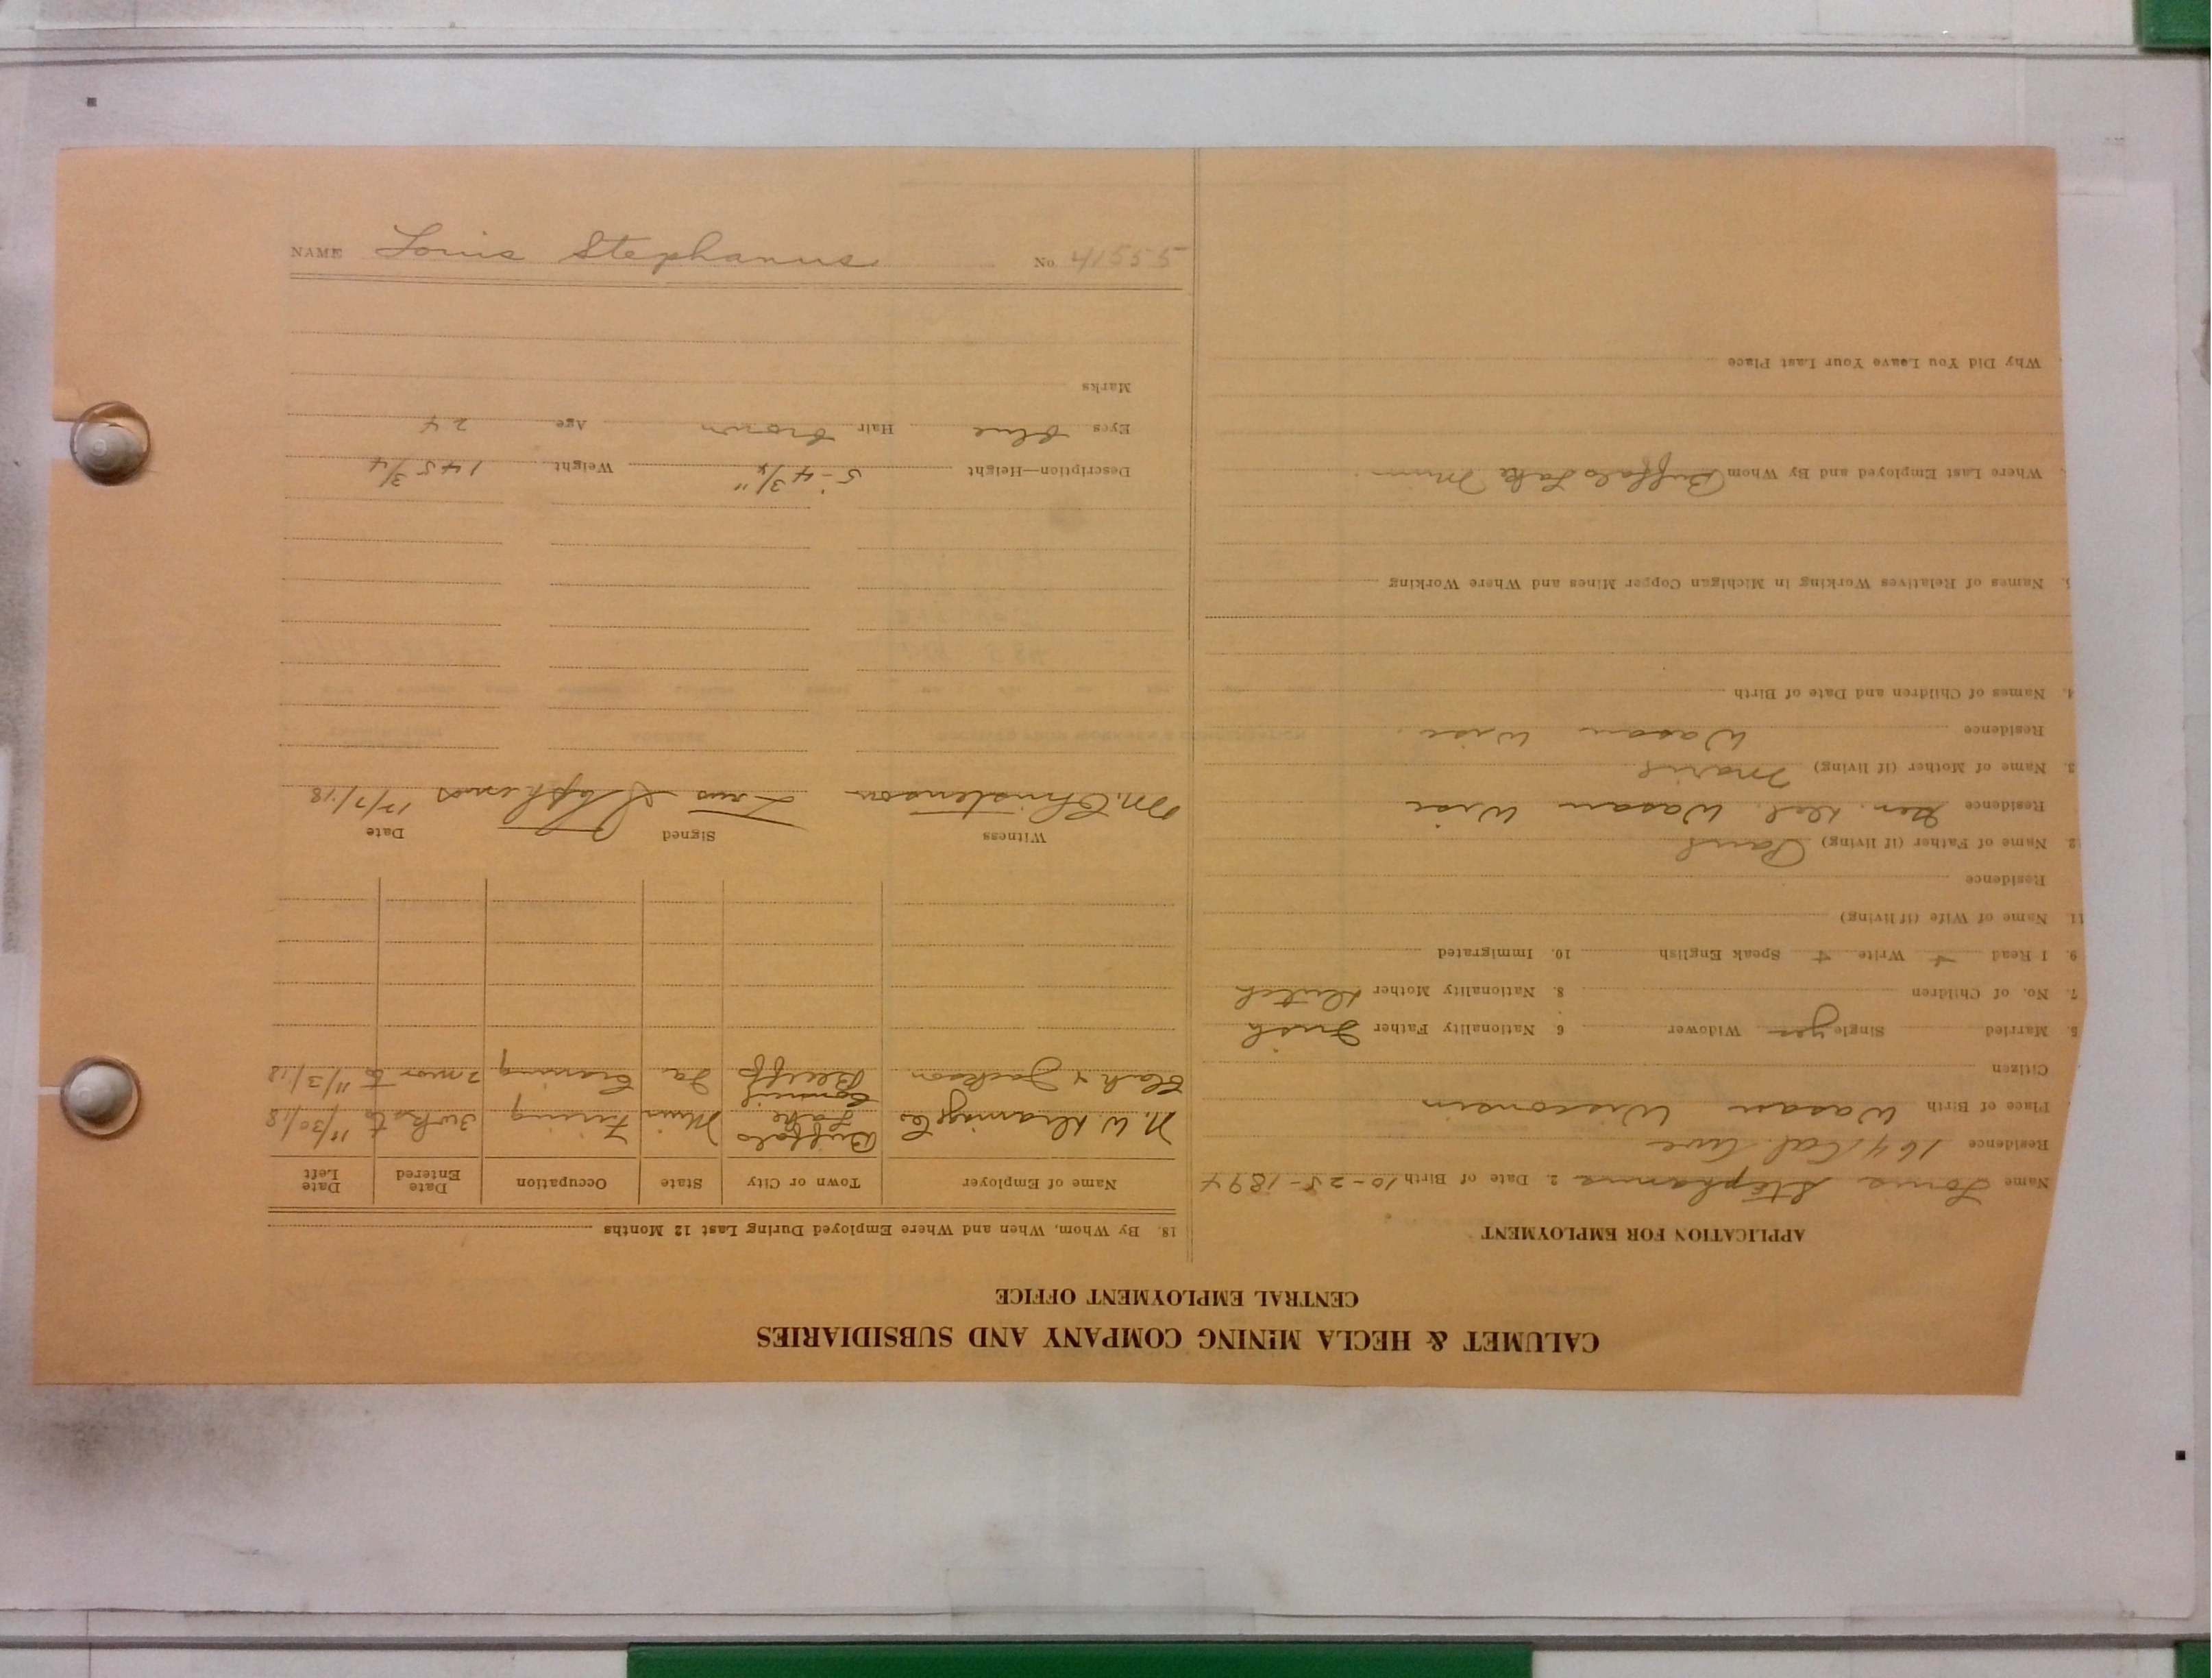 NAME Louis Stephanus No. 41555
CALUMET & HECLA MINING COMPANY AND SUBSIDIARIES
CENTRAL EMPLOYMENT OFFICE
APPLICATION FOR EMPLOYMENT
Name Louis Stephanus 2. Date of Birth 10-25-1894
Residence 164 Cal. Ave
Place of Birth Wasau Wisconsin
Citizen
5. Married Single yes Widower 6. Nationality Father Irish
7. No. of Children 8. Nationality Mother Dutch
9. I Read + Write + Speak English 10. Immigrated
11. Name of Wife (if living)
Residence
2. Name of Father (if living) Paul
Residence Gen. Del. Wasau Wise
3. Name of Mother (if living) Marie
Residence Wasau Wise.
4. Names of Children and Date of Birth
Names of Relatives Working in Michigan Copper Mines and Where Working
Where Last Employed and By Whom Buffalo Lake Minn
Why Did You Leave Your Last Place
18. By Whom, When and Where Employed During Last 12 Months
Name of Employer Town or City State Occupation Date Entered Date Left
N. W. Buffalo Lake Minn Firing 3 wks to 11/30/18
Clark & Jackson Council Bluffs Ia 2 mos to 11/3/18
Witness Signed Date
M. Christenson Louis Stephanus 12/7/18
Description—Height 5-4 3/4" Weight 145 3/4
Eyes blue Hair brown Age 24
Marks